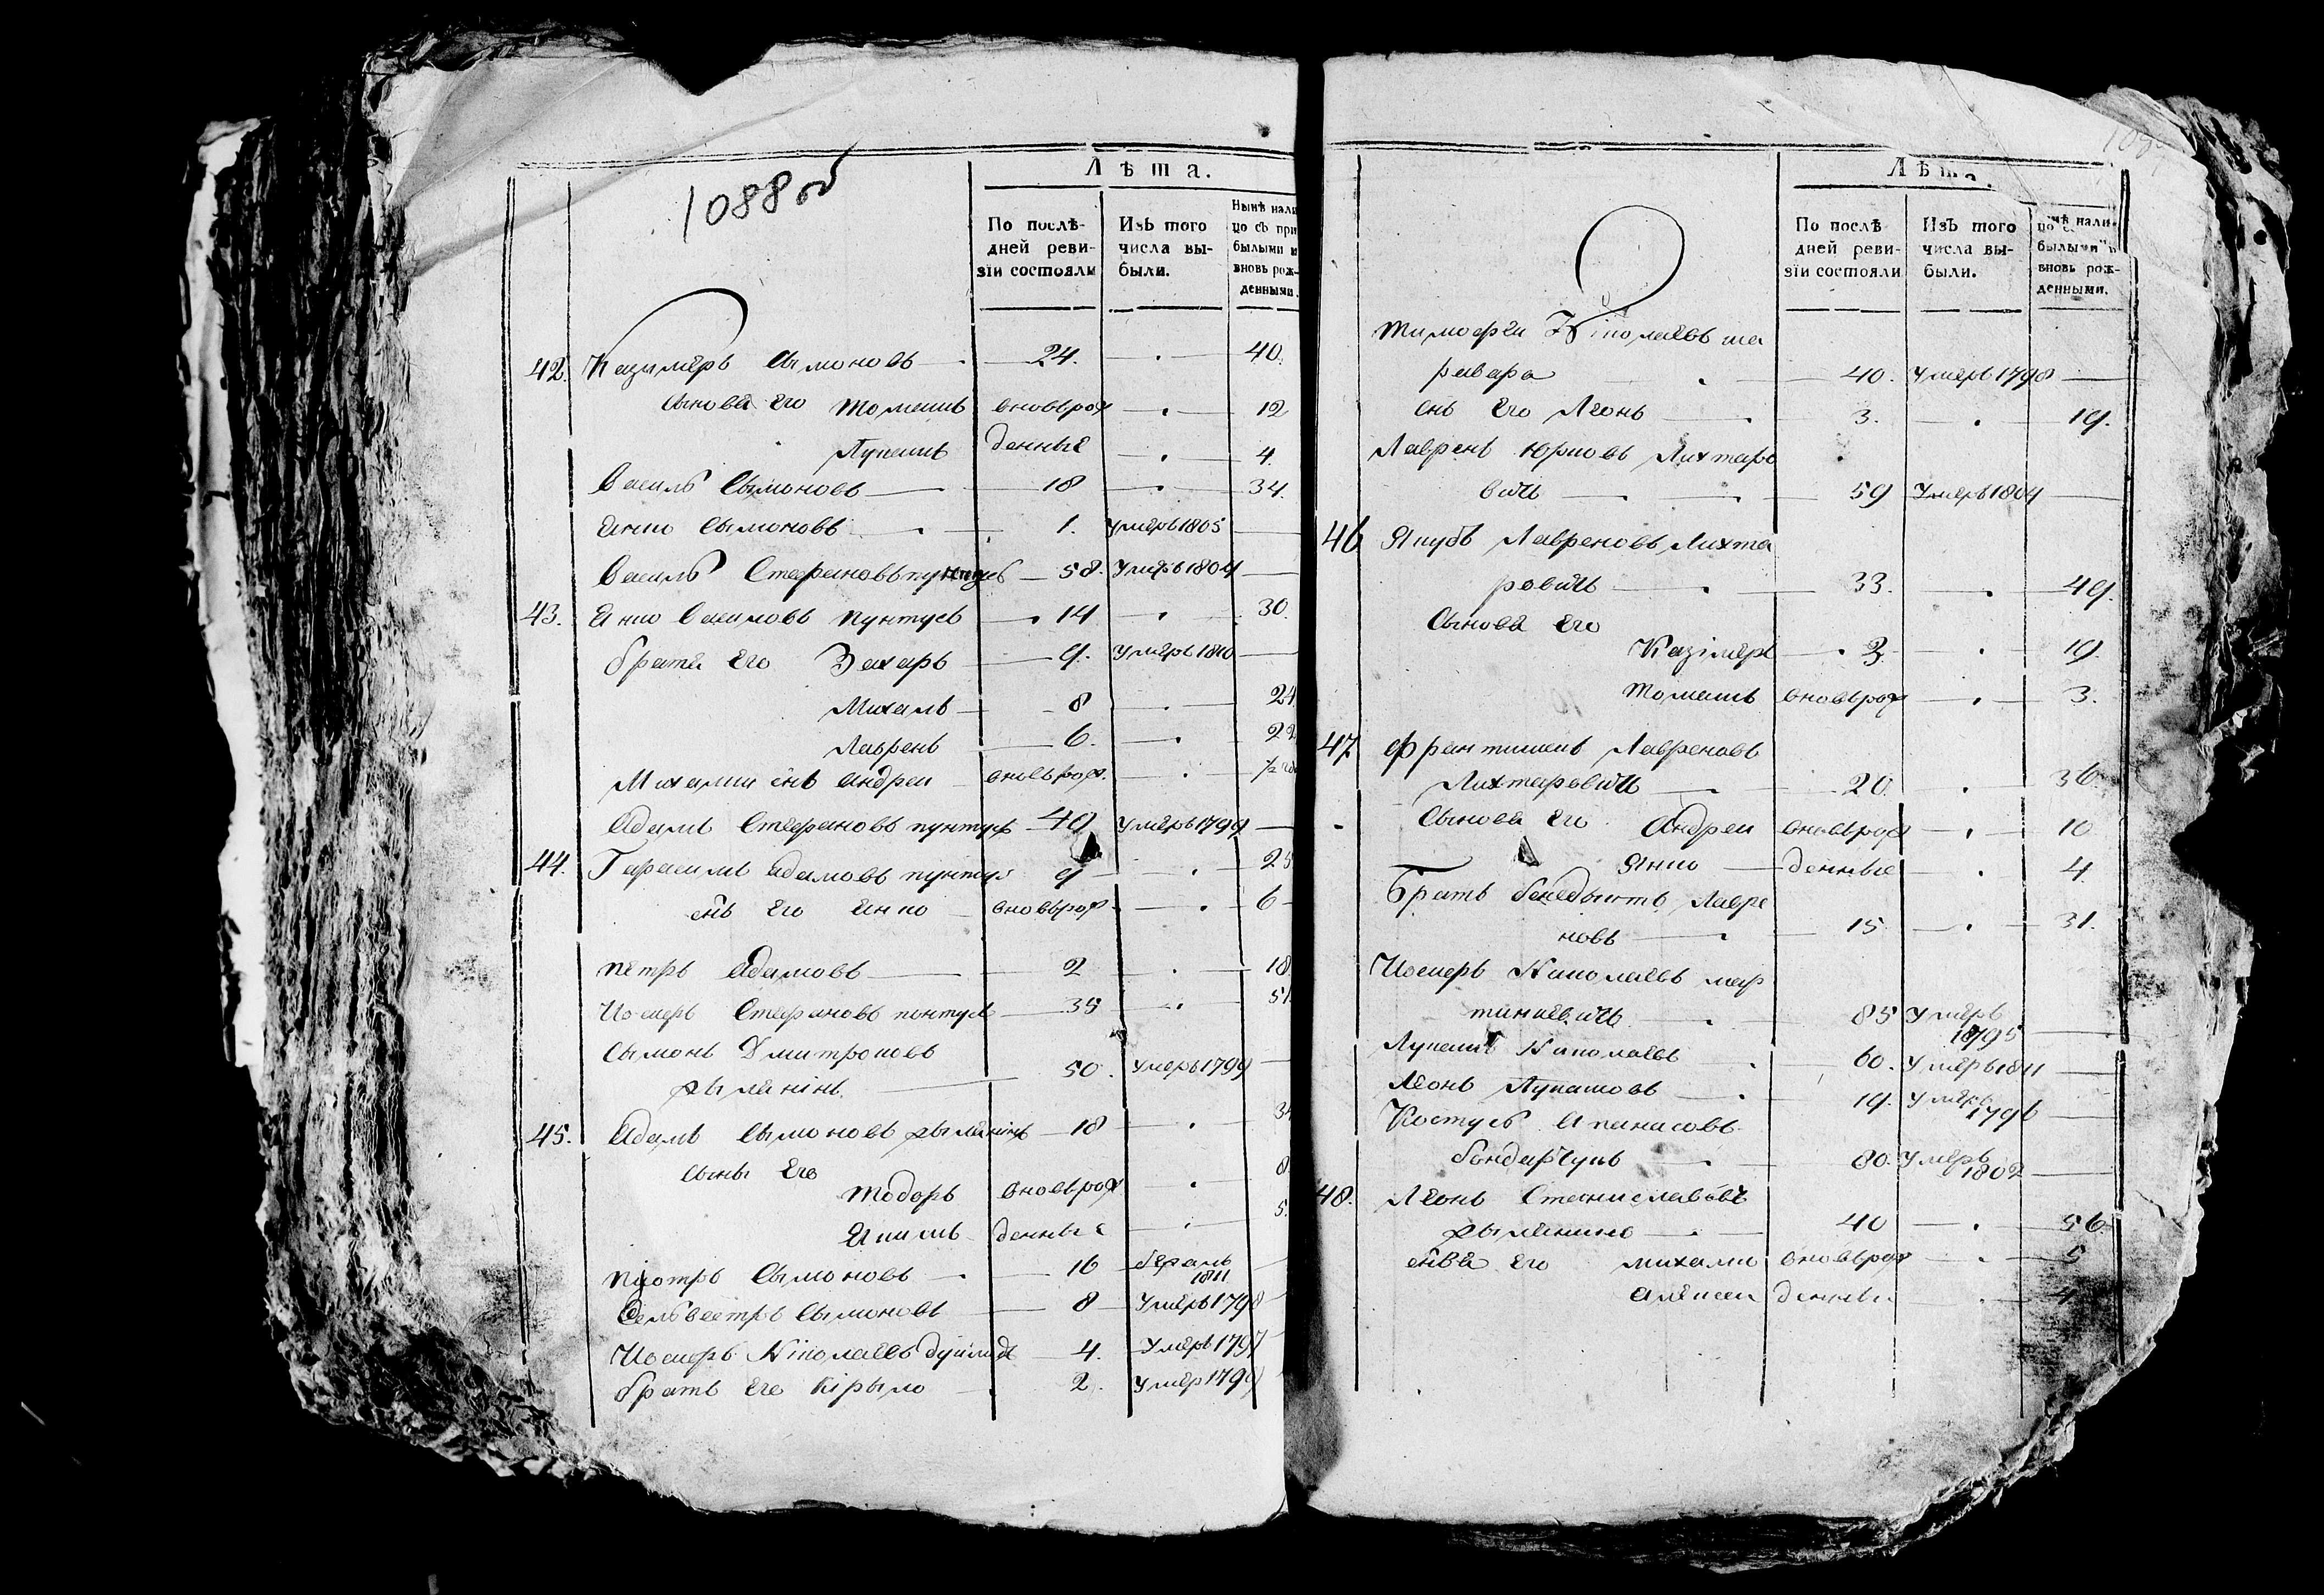 1088 об
Лѣта.
По послѣ-
дней реви-
зіи состояли
Изъ того
числа вы-
были.
Нынѣ нали
цо съ при
былыми и
вновь рож-
денными.
42. Казимѣръ Сымоновъ 24. 40.
Сыновя Его Томашъ вновьрож 12
Лукашъ денные 4.
Василь Сымоновъ 18 34.
Янко Сымоновъ 1. Умѣръ 1805
Василь Стефановъ пунтусъ 58. Умѣръ 1804
43. Янко Василовъ пунтусъ 14 30.
братя Его Захаръ 9. Умѣръ 1810
Михаль 8 24
Лаврень 6. 22
Михалки снъ Андреи вновьрож. 1/2
Адамъ Стефановъ пунтусъ 40 Умѣръ 1799
44. Гарасимъ Адамовъ пунтусъ 9 25
снъ Его Янко вновьрож 6
Пётръ Адамовъ 2 18.
Иосифъ Стефановъ пунтусъ 35 51.
Сымонъ Дмитроковъ
рымянінъ 50. Умѣръ 1799
45. Адамъ Сымоновъ рымянінъ 18 34
сыны Его
Тодоръ вновьрож 8.
Якимъ денные 5.
Піотръ Сымоновъ 16 бѣгаль
1811
Сельвестръ Сымоновъ 8 Умѣръ 1798
Иосифъ Ніколаевъ 4. Умѣръ 1797
братъ Его Кірыло 2. Умѣр 179
Лѣта.
По послѣ-
дней реви-
зіи состояли
Изъ того
числа вы-
были.
нѣ нали-
цо с
былыми и
вновь рож-
денными.
Тимофеи Ніколаевъ ша
равара 40. Умѣръ 1798
снъ Его Леонъ 3. 19.
Лаврень Юрковъ Лихтаро
вичъ 59 Умѣръ 1804
46 Якубъ Лавреновъ Лихта
ровичъ 33. 49.
Сыновя Его
Казімеръ 3. 19.
Томашъ вновьрож 3.
47 Франтишекъ Лавреновъ
Лихтаровичъ 20. 36.
Сыновя Его Андреи вновьрож 10
Янко денные 4.
Братъ бенедыктъ Лавре
новъ 15 31.
Иосифъ Николаевъ мар
тинкевичъ 85 Умѣръ
1795
Лукашъ Николаевъ 60. Умѣръ 1811
Леонъ Лукашовъ 19. Умѣръ
1796
Костусь Апанасовъ
бондарчукъ 80. Умѣръ
1802
48. Леонъ Станиславовъ
рымянинъ 40 56.
снвя Его михалко вновьрож 5
Алексеи денные 4